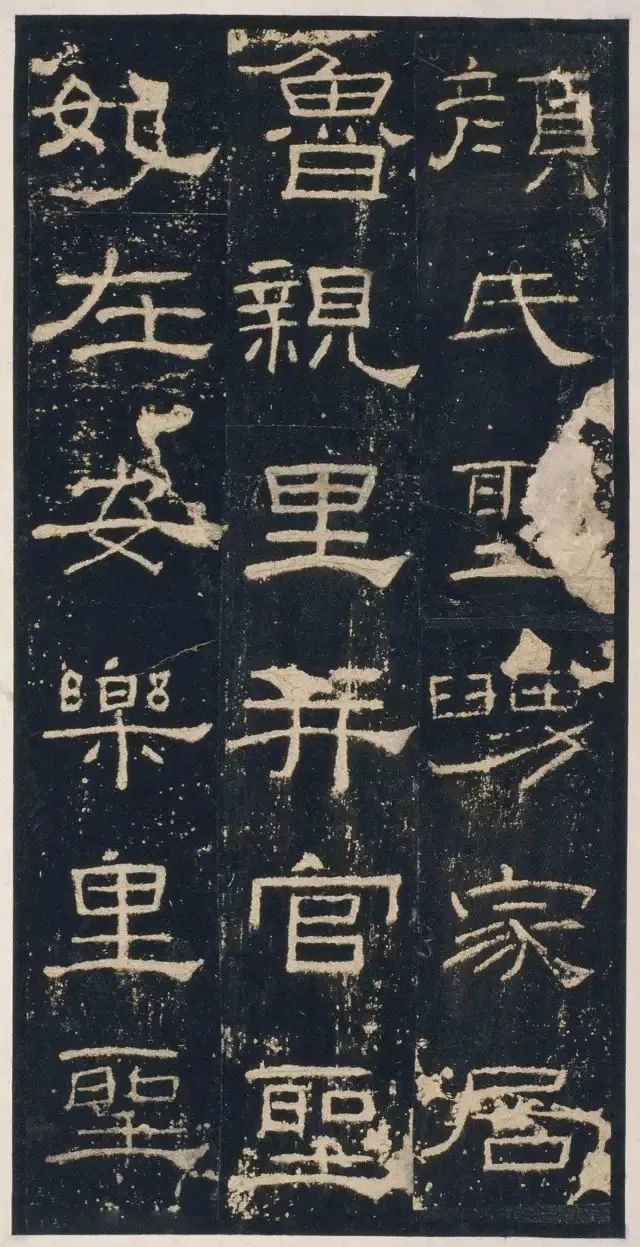 顏氏聖舅家居
魯親里并官聖
妃在安樂里聖